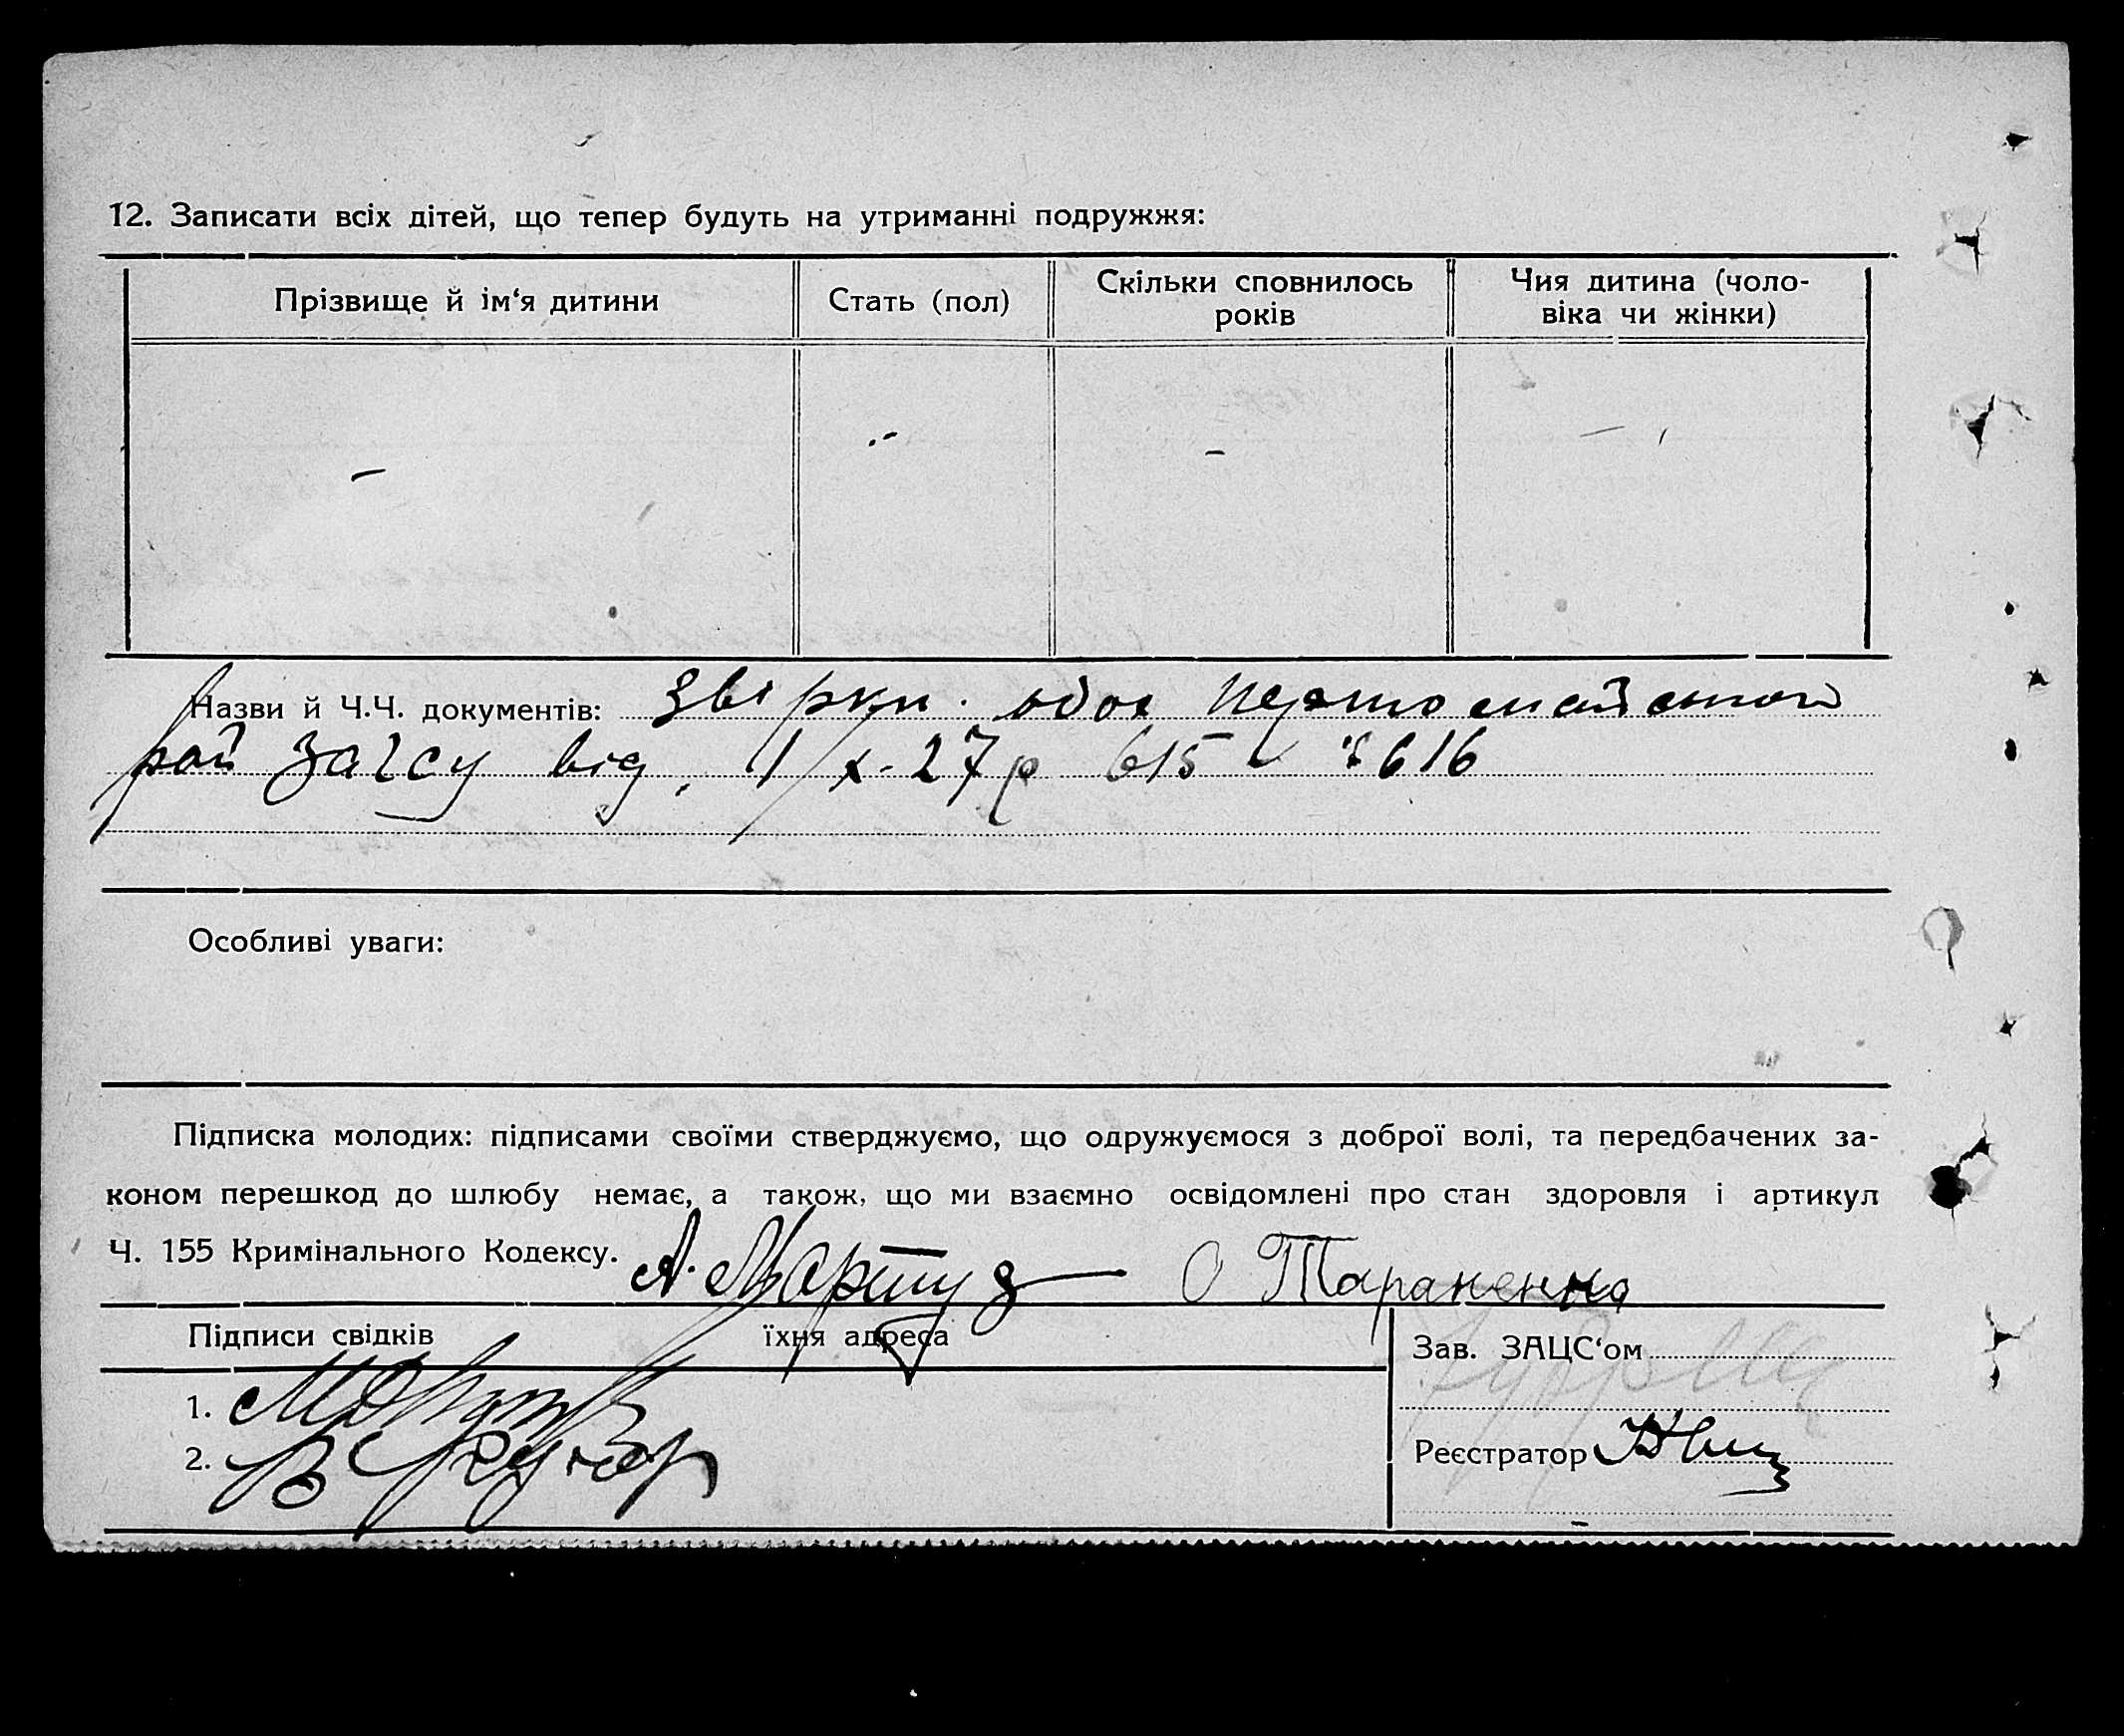 12. Записати всіх дітей, що тепер будуть на утриманні подружжя:
Прізвище й ім‘я дитини
Стать (пол)
Скільки сповнилось
років
Чия дитина (чоло-
віка чи жінки)
Назви й Ч.Ч. документів:
рай Загсу від 1/X-27р 615 616
Особливі уваги:
Підписка молодих: підписами своїми стверджуємо, що одружуємося з доброї волі, та передбачених за-
коном перешкод до шлюбу немає, а також, що ми взаємно освідомлені про стан здоровля і артикул
Ч. 155 Кримінального Кодексу. О Тараненко
Підписи свідків їхня адреса
Зав. ЗАЦС‘ом
1.
2.
Реєстратор